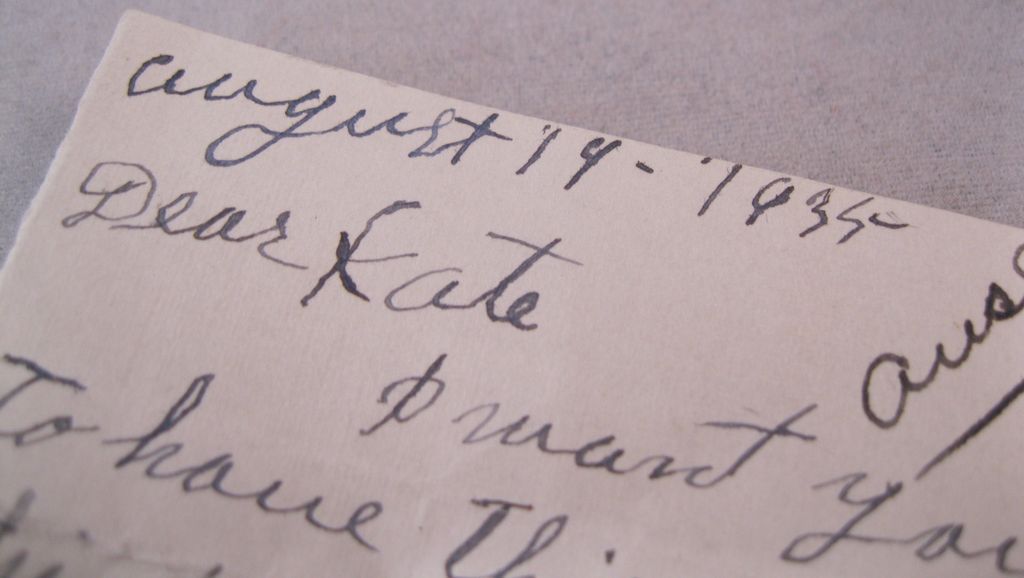 august 19 - 1935
Dear Kate
I want you
To have